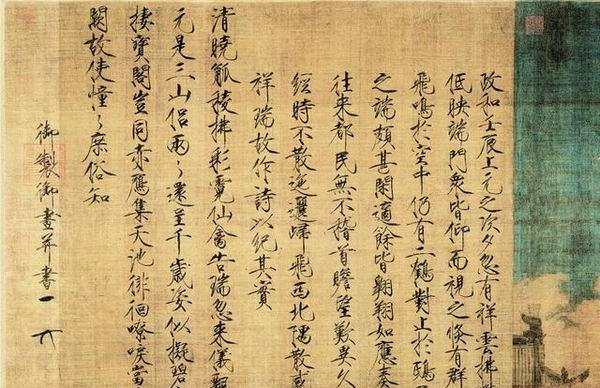 政和壬辰上元之次夕忽有祥雲拂
低映端門衆皆仰而視之倏有群
飛鳴於空中仍有二鶴對止於鴟
之端頗甚閑適餘皆翱翔如應奏
往来都民無不稽首瞻望歎異久
經時不散迤邐歸飛西北隅散感
祥瑞故作詩以紀其實
清曉觚稜拂彩霓仙禽告瑞忽来儀飄
元是三山侶兩〻還呈千歲姿似擬碧
棲寶閣豈同赤鴈集天池徘徊嘹唳當
闕故使憧〻庶俗知
御製御畫并書